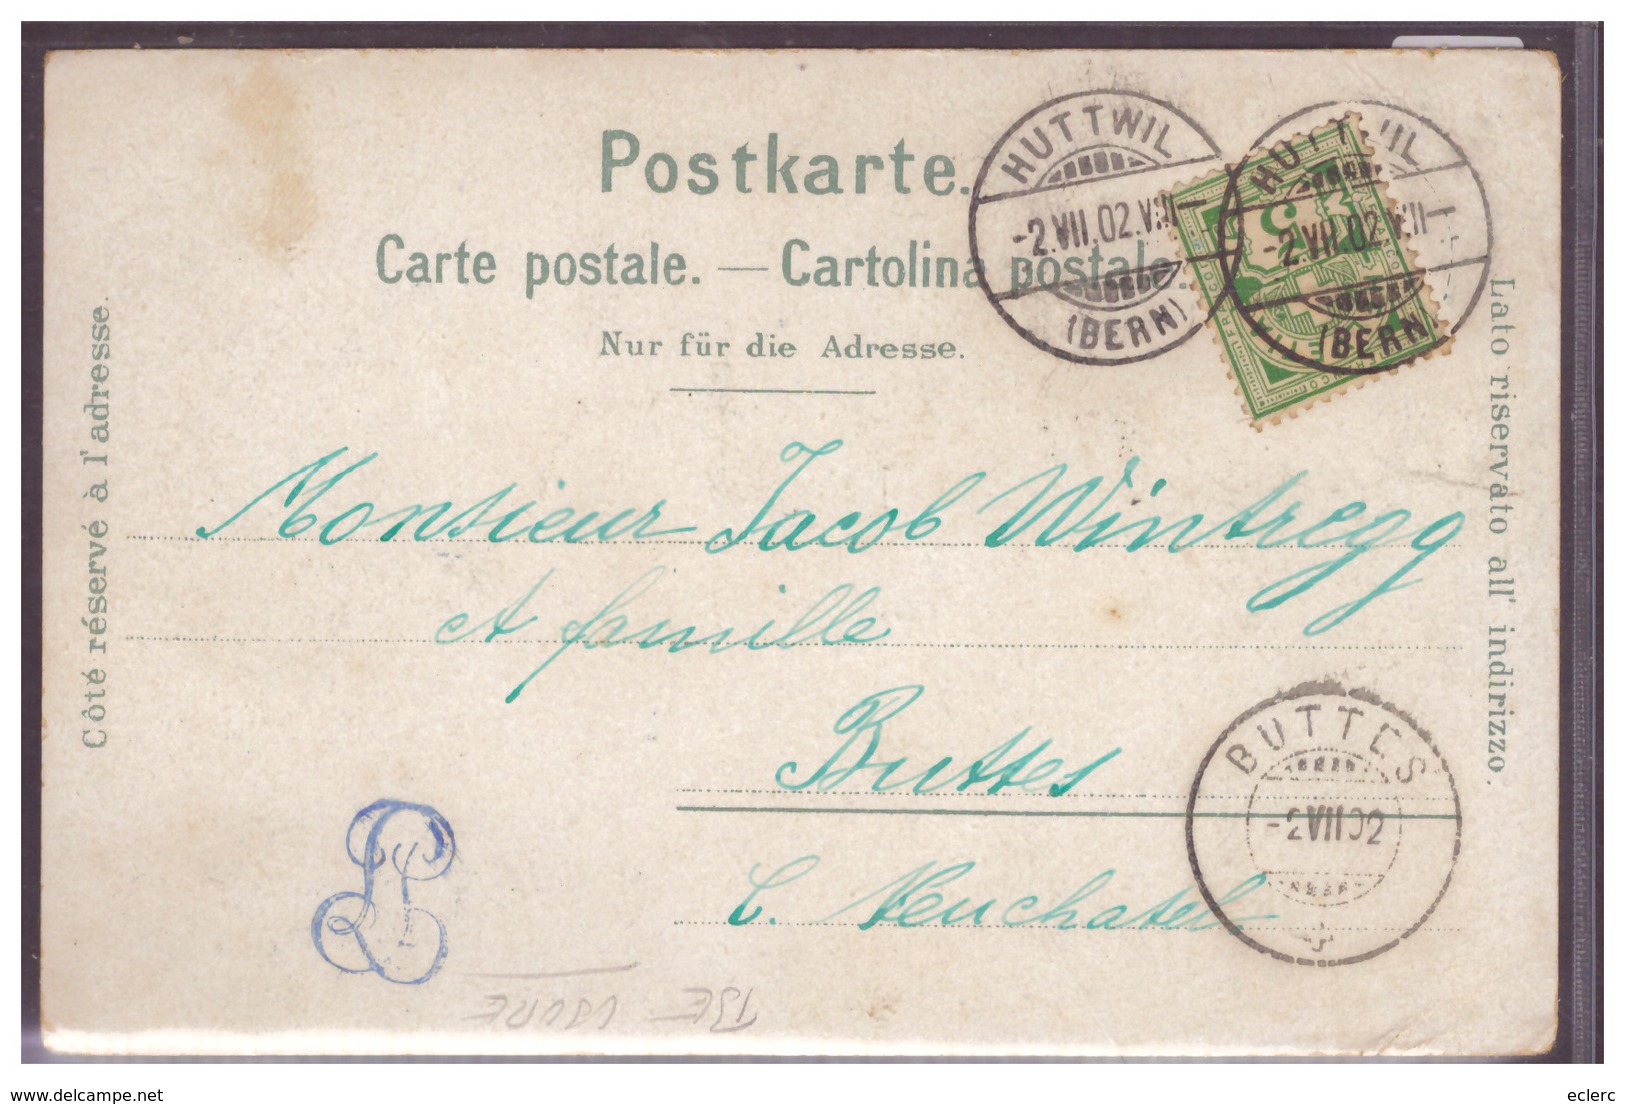 Postkarte.
Carte postale. — Cartolina postale.
Nur für die Adresse.
Côté réservé à l'adresse.
Lato riservato all' indirizzo.
HUTTWIL
-2.VII.02.VIII-
(BERN)
HUTTWIL
-2.VII.02.VIII-
(BERN)
5
FRANCO
Monsieur Jacob Wintregg
et famille
Buttes
C. Neuchatel
BUTTES
-2 VII 02
BE USURE
delcampe.net
eclerc